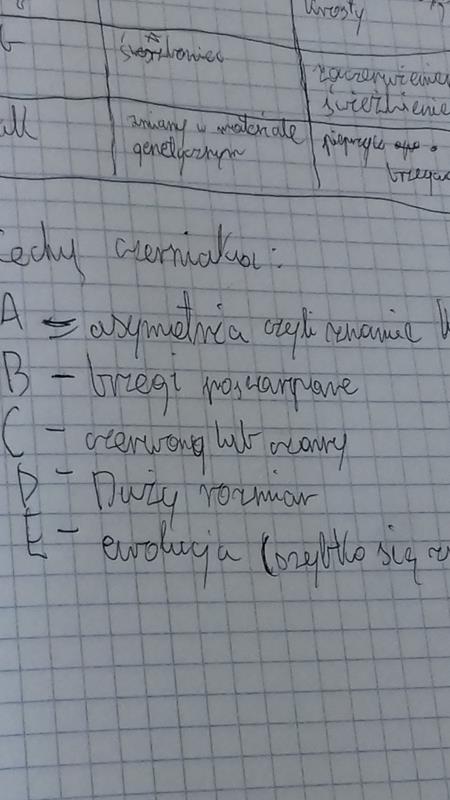 krosty
świerzbowiec
zaczerwienie
świerzbienie
zmiany w materiale
genetycznym
brzegac
cechy czerniaka:
A = asymetria czyli znamie
B - brzegi poszarpane
C - czerwony lub czarny
D - Duży rozmiar
E - ewolucja (szybko się z